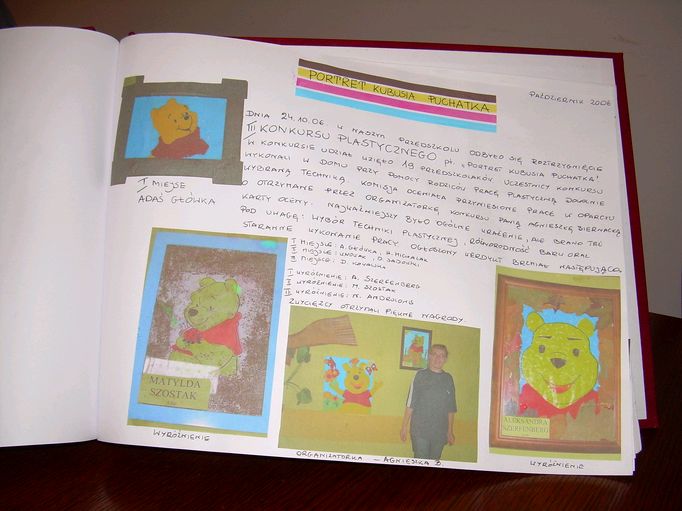 PORTRET KUBUSIA PUCHATKA
PAŹDZIERNIK 2006
DNIA 24.10.06 W NASZYM PRZEDSZKOLU ODBYŁO SIĘ ROZTRZYGNIĘCIE
III KONKURSU PLASTYCZNEGO pt. „PORTRET KUBUSIA PUCHATKA"
W KONKURSIE UDZIAŁ WZIĘTO 19 PRZEDSZKOLAKÓW. UCZESTNICY KONKURSU
WYKONALI W DOMU PRZY POMOCY RODZICÓW PRACĘ PLASTYCZNĄ DOWOLNIE
WYBRANĄ TECHNIKĄ. KOMISJA OCENIAŁA PRZYNIESIONE PRACE W OPARCIU
O OTRZYMANE PRZEZ ORGANIZATORKĘ KONKURSU PANIĄ AGNIESZKĘ BIERNACKĄ
KARTY OCENY. NAJWAŻNIEJSZY BYŁO OGÓLNE WRAŻENIE, ALE BRANO TEŻ
POD UWAGĘ: WYBÓR TECHNIKI PLASTYCZNEJ, RÓŻNORODNOŚĆ BARW ORAZ
STARANNE WYKONANIE PRACY. OGŁOSZONY WERDYKT BRZMIAŁ NASTĘPUJĄCO,
I MIEJSCE: A. GŁÓWKA, H. MICHALAK
II MIEJSCE: D. SADOWSKI
III MIEJSCE: D. KOWALSKA
I WYRÓŻNIENIE: A. SZERFENBERG
II WYRÓŻNIENIE: M. SZOSTAK
III WYRÓŻNIENIE:
ZWYCIĘZCY OTRZYMALI PIĘKNE NAGRODY.
I MIEJSCE
ADAŚ GŁÓWKA
MATYLDA
SZOSTAK
WYRÓŻNIENIE
ORGANIZATORKA – AGNIESZKA B.
ALEKSANDRA
SZERFENBERG
WYRÓŻNIENIE